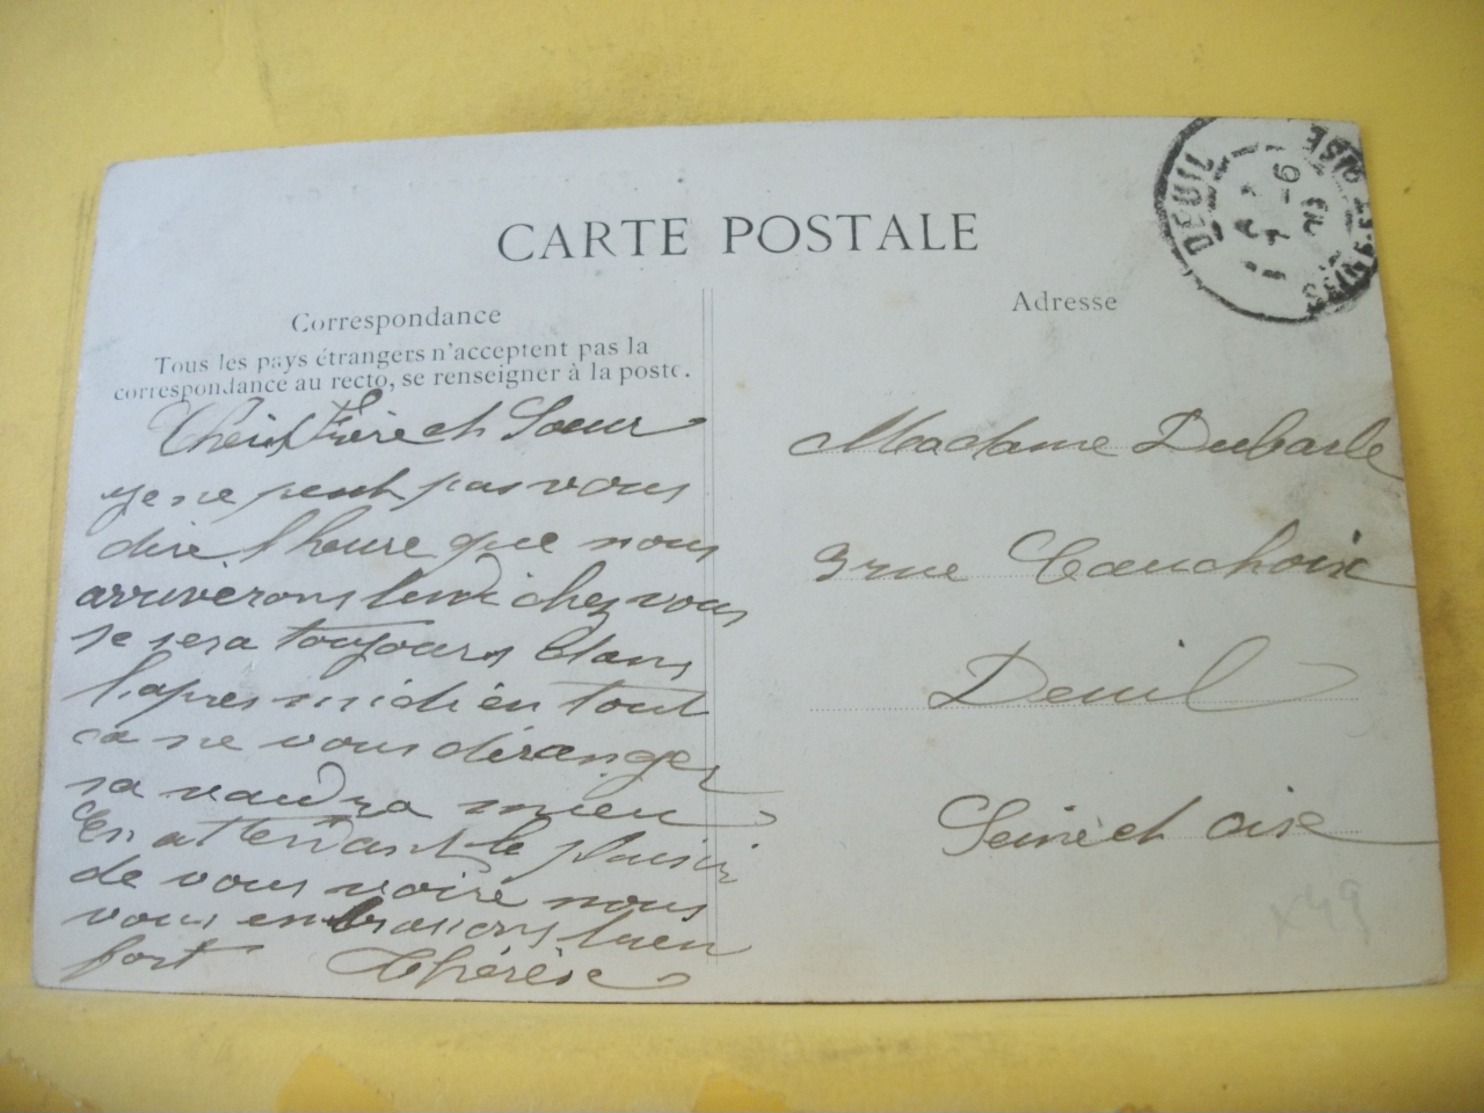 CARTE POSTALE
Correspondance
Tous les pays étrangers n'acceptent pas la
correspondance au recto, se renseigner à la poste.
Cheis Frère et Sœur
je ne peut pas vous
dire l'heure que nous
arriverons lundi chez vous
se sera toujours dans
l'apres midi en tout
ca ne vous déranger
sa vaudra mieu
En attendant le plaisir
de vous voire nous
vous embrasons bien
fort Thérèse
Adresse
Madame Dubarle
3 rue Cauchoix
Deuil
Seine et oise
DEUIL
7-9
x49